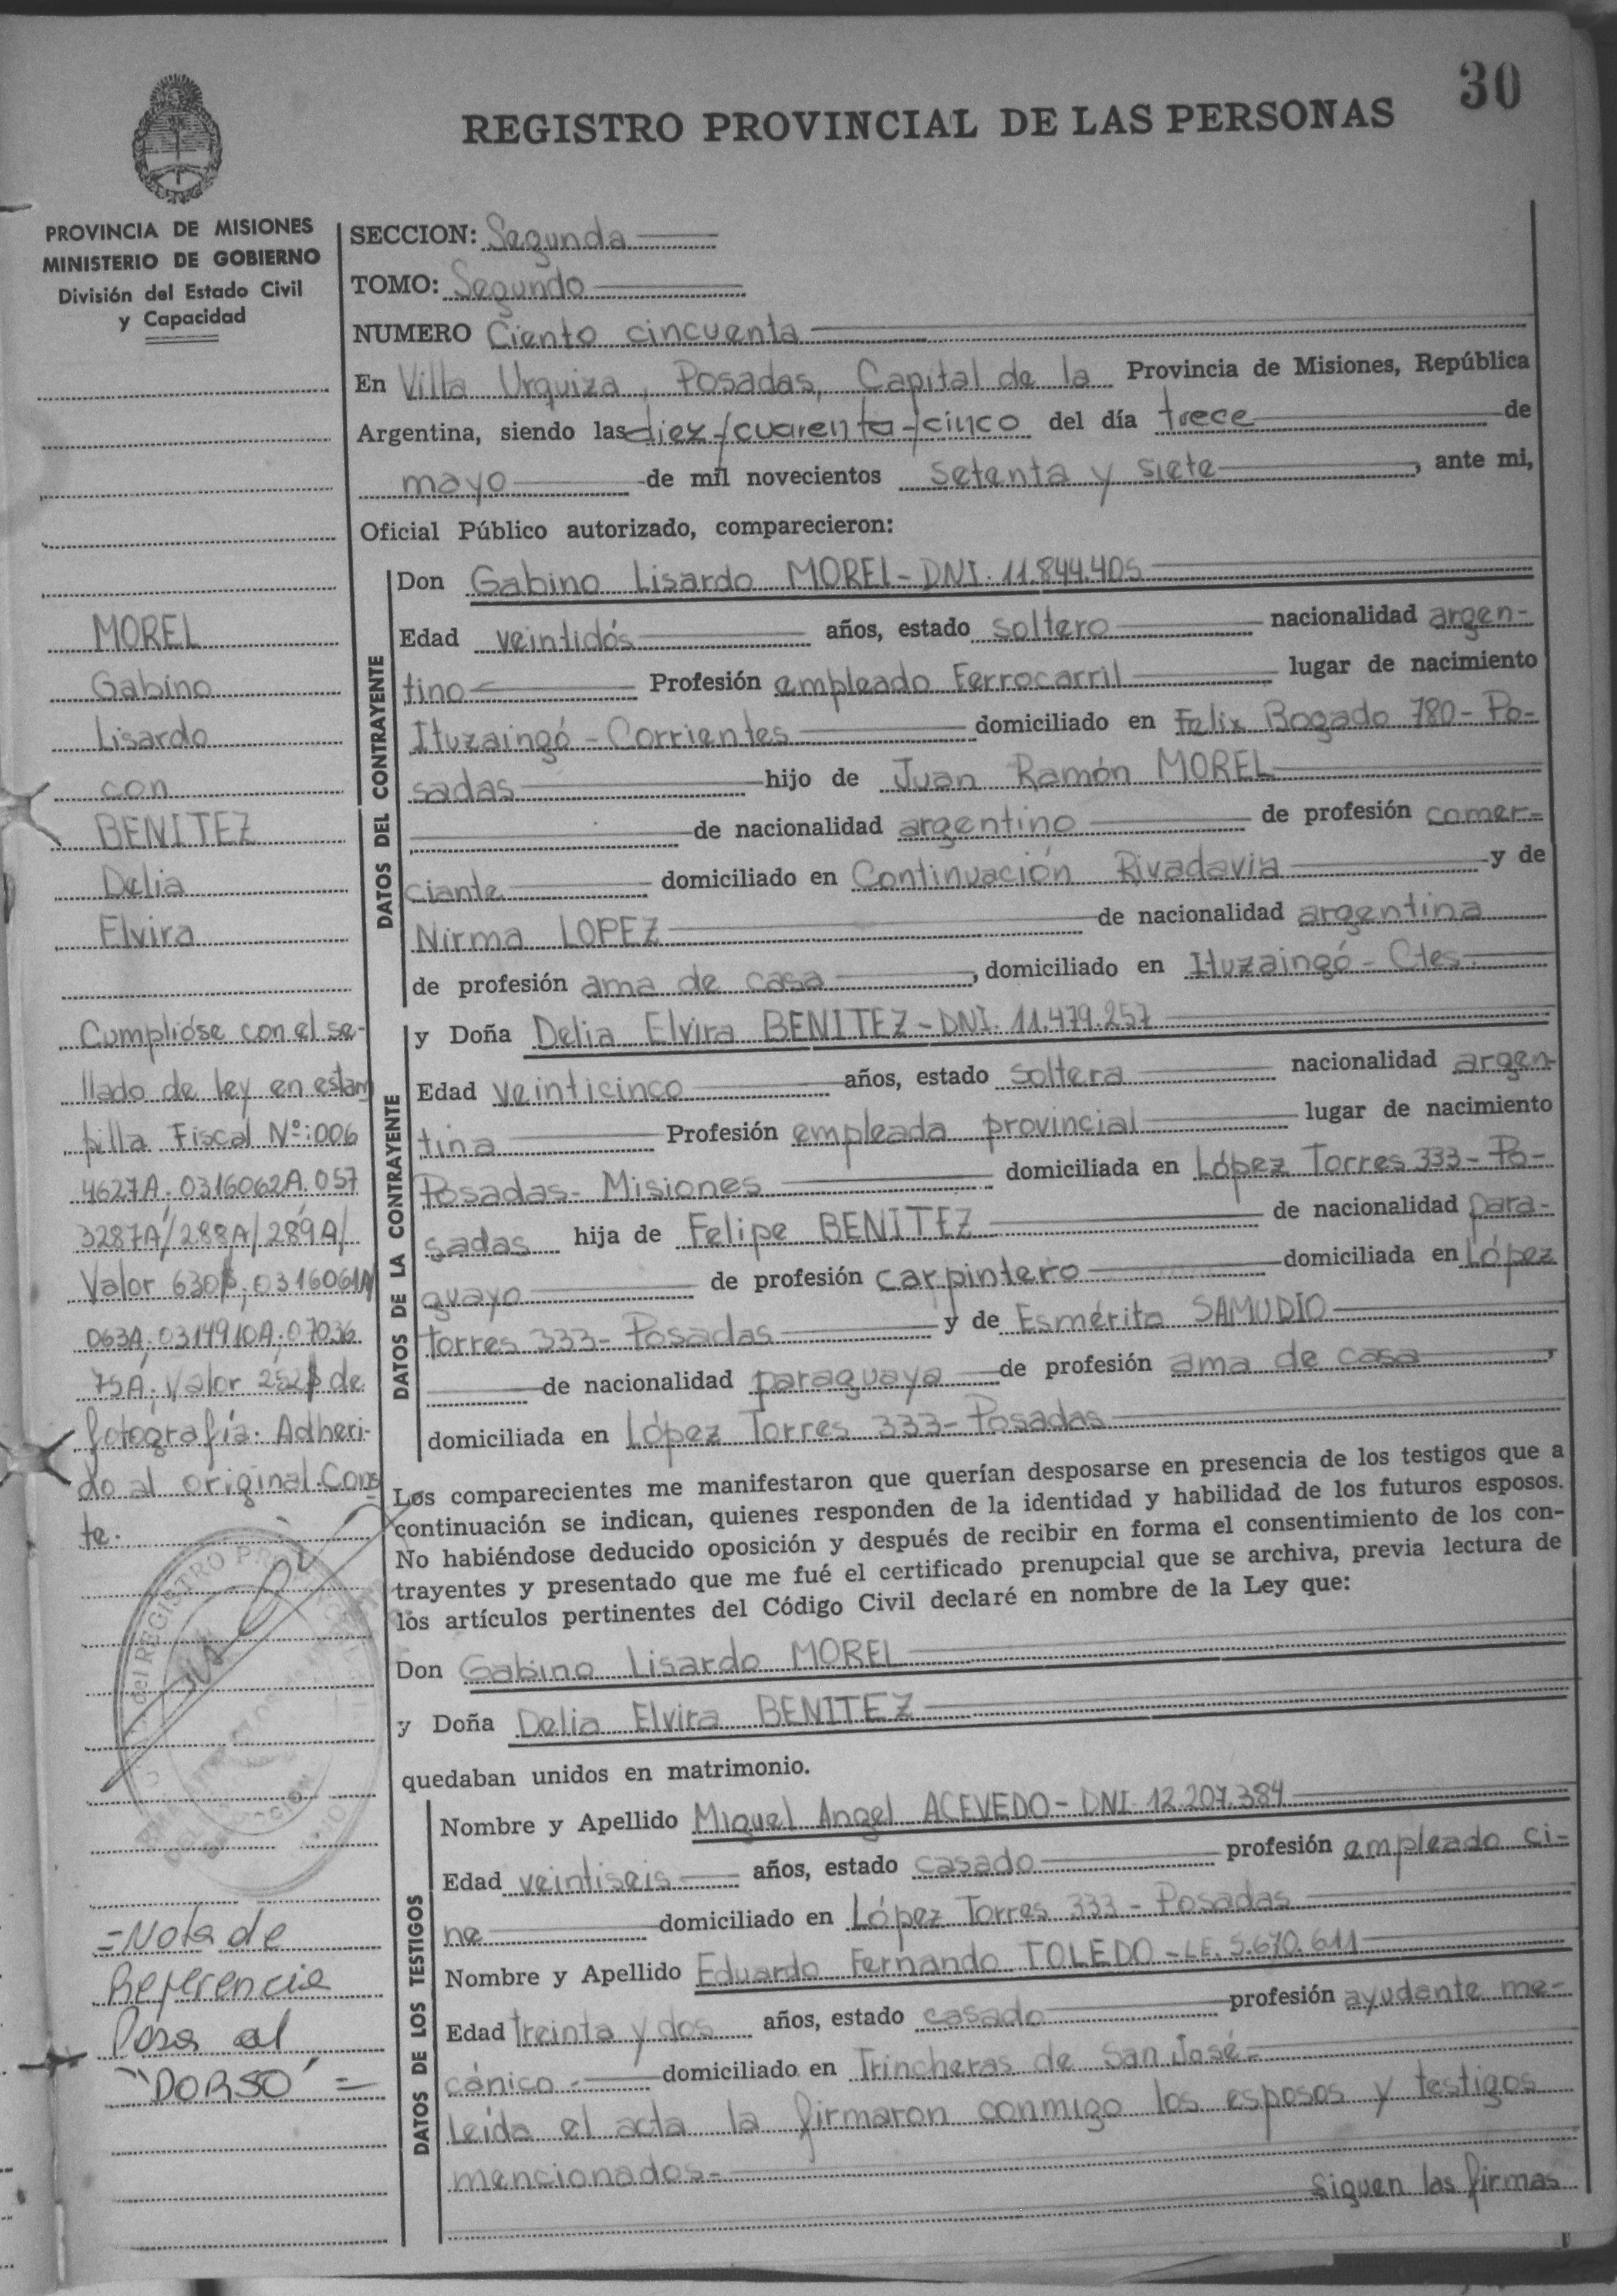 30
REGISTRO PROVINCIAL DE LAS PERSONAS
PROVINCIA DE MISIONES
MINISTERIO DE GOBIERNO
División del Estado Civil
y Capacidad
MOREL
Gabino
Lisardo
con
BENITEZ
Delia
Elvira
Cumplióse con el se-
llado de ley en estam
pilla Fiscal Nº: 006
4627A; 0316062A; 057
3287A/288A/289A/
Valor 630$; 0316061A
063A; 0314910A; 07036
75A; Valor 252$ de
fotografía. Adheri-
do al original. Cons
te.
del REGISTRO
=Nota de
Referencia
Pasa al
"DORSO"=
SECCION: Segunda
TOMO: Segundo
NUMERO Ciento cincuenta
En Villa Urquiza, Posadas, Capital de la Provincia de Misiones, República
Argentina, siendo las diez/cuarenta/cinco del día trece de
mayo de mil novecientos setenta y siete, ante mi,
Oficial Público autorizado, comparecieron:
DATOS DEL CONTRAYENTE
Don Gabino Lisardo MOREL-DNI. 11.844.405
Edad veintidós años, estado soltero nacionalidad argen-
tino Profesión empleado Ferrocarril lugar de nacimiento
Ituzaingó-Corrientes domiciliado en Felix Bogado 780-Po-
sadas hijo de Juan Ramón MOREL
de nacionalidad argentino de profesión comer-
ciante domiciliado en Continuación Rivadavia y de
Nirma LOPEZ de nacionalidad argentina
de profesión ama de casa, domiciliado en Ituzaingó-Ctes.
DATOS DE LA CONTRAYENTE
y Doña Delia Elvira BENITEZ-DNI. 11.479.257
Edad veinticinco años, estado soltera nacionalidad argen-
tina Profesión empleada provincial lugar de nacimiento
Posadas-Misiones domiciliada en López Torres 333-Po-
sadas hija de Felipe BENITEZ de nacionalidad para-
guayo de profesión carpintero domiciliada en López
torres 333-Posadas y de Esmérita SAMUDIO
de nacionalidad paraguaya de profesión ama de casa,
domiciliada en López Torres 333-Posadas
Los comparecientes me manifestaron que querían desposarse en presencia de los testigos que a
continuación se indican, quienes responden de la identidad y habilidad de los futuros esposos.
No habiéndose deducido oposición y después de recibir en forma el consentimiento de los con-
trayentes y presentado que me fué el certificado prenupcial que se archiva, previa lectura de
los artículos pertinentes del Código Civil declaré en nombre de la Ley que:
Don Gabino Lisardo MOREL
y Doña Delia Elvira BENITEZ
quedaban unidos en matrimonio.
DATOS DE LOS TESTIGOS
Nombre y Apellido Miguel Angel ACEVEDO-DNI 12.207.384
Edad veintiseis años, estado casado profesión empleado ci-
ne domiciliado en López Torres 333-Posadas
Nombre y Apellido Eduardo Fernando TOLEDO-LE. 5.670.611
Edad treinta y dos años, estado casado profesión ayudante me-
cánico.- domiciliado en Trincheras de San José-
leída el acta la firmaron conmigo los esposos y testigos
mencionados-
Siguen las firmas